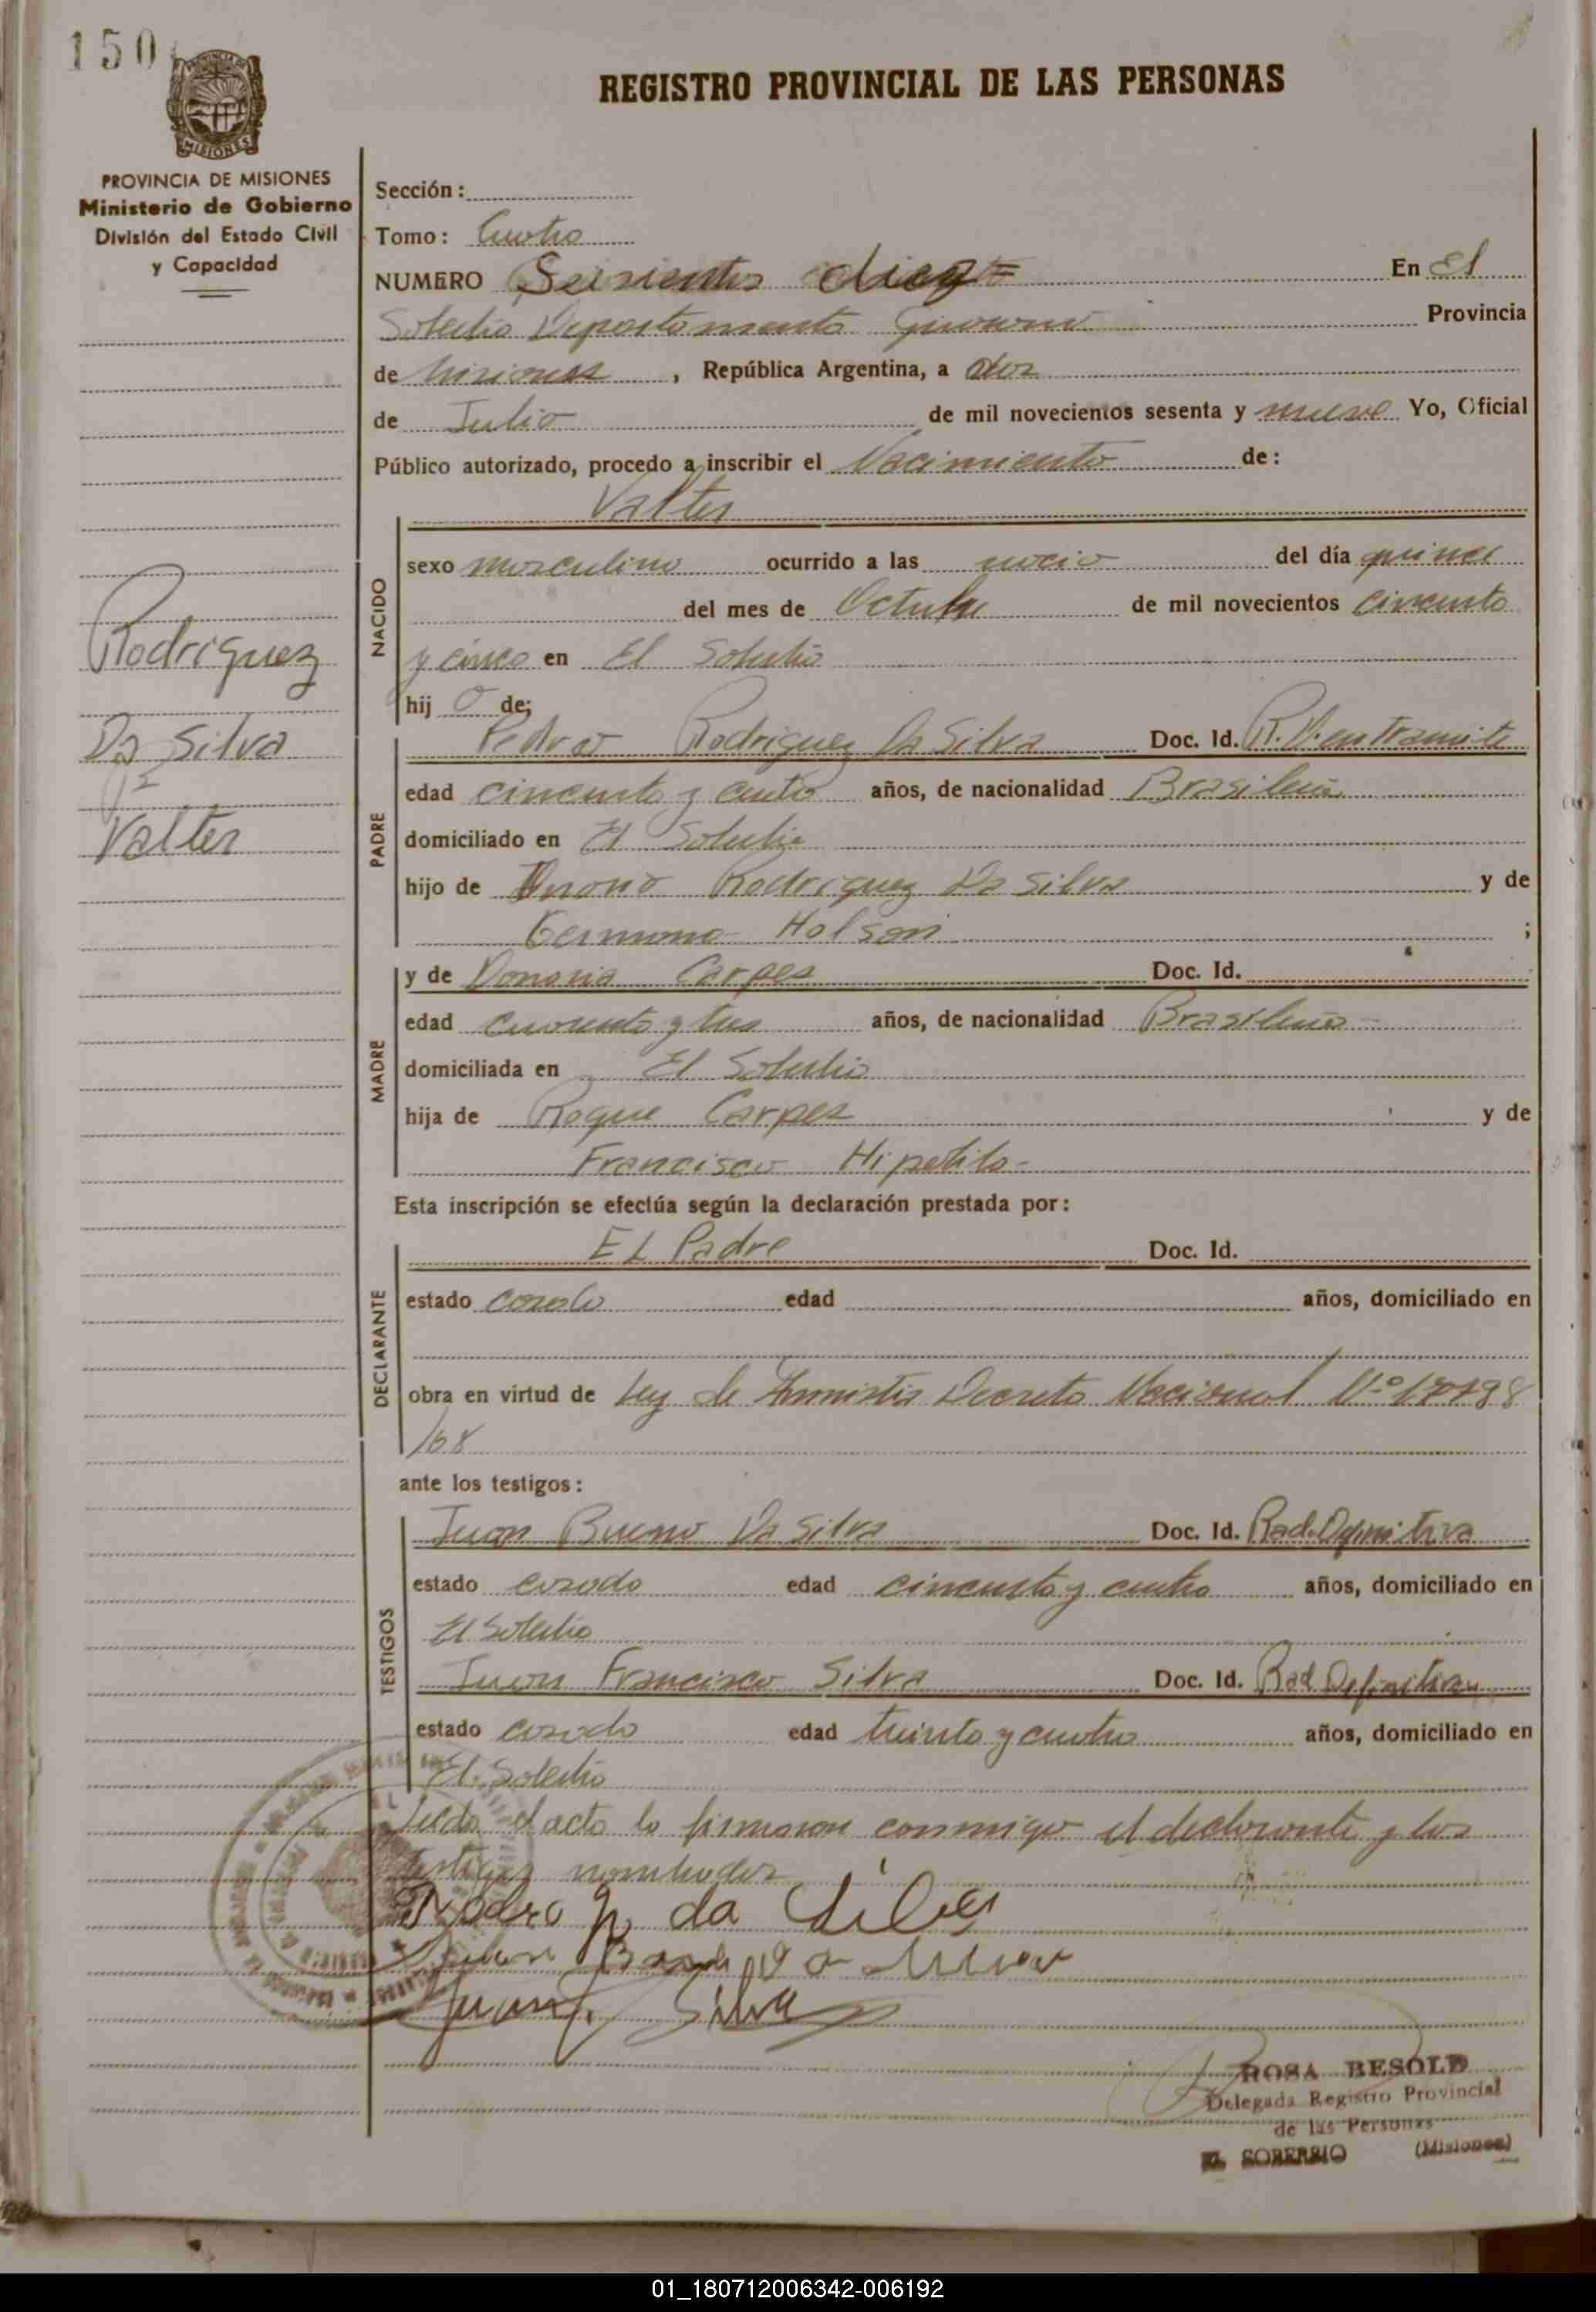 150
PROVINCIA DE MISIONES
REGISTRO PROVINCIAL DE LAS PERSONAS
PROVINCIA DE MISIONES
Ministerio de Gobierno
División del Estado Civil
y Capacidad
Sección:
Tomo: Cuatro
NUMERO Seiscientos diez = En El
Soberbio Departamento Guaraní Provincia
de Misiones, República Argentina, a dos
de Julio de mil novecientos sesenta y nueve Yo, Oficial
Público autorizado, procedo a inscribir el Nacimiento de:
Valter
NACIDO
sexo masculino ocurrido a las del día quince
del mes de Octubre de mil novecientos cincuenta
y cinco en El Soberbio
hij o de;
Rodriguez
Da Silva
Valter
PADRE
Pedro Rodriguez Da Silva Doc. Id. R.D. en tramite
edad cincuenta y cuatro años, de nacionalidad Brasileña
domiciliado en El Soberbio
hijo de Rodriguez Da Silva y de
Germana Holson ;
MADRE
y de Carpes Doc. Id.
edad cuarenta y tres años, de nacionalidad Brasileña
domiciliada en El Soberbio
hija de Roque Carpes y de
Francisca Hipolito -
Esta inscripción se efectúa según la declaración prestada por:
DECLARANTE
El Padre Doc. Id.
estado casado edad años, domiciliado en
obra en virtud de Ley de Amnistia Decreto Nacional Nº
/68
ante los testigos:
TESTIGOS
Juan Bueno Da Silva Doc. Id. Rad. Definitiva
estado casado edad cincuenta y cuatro años, domiciliado en
El Soberbio
Juan Francisco Silva Doc. Id. Rad. Definitiva
estado casado edad treinta y cuatro años, domiciliado en
El Soberbio
Leida el acta la firmaron conmigo el declarante y los
testigos nombrados
Pedro R da Silva
Juan F. Silva
ROSA BESOLD
Delegada Registro Provincial
de las Personas
EL SOBERBIO (Misiones)
01_180712006342-006192